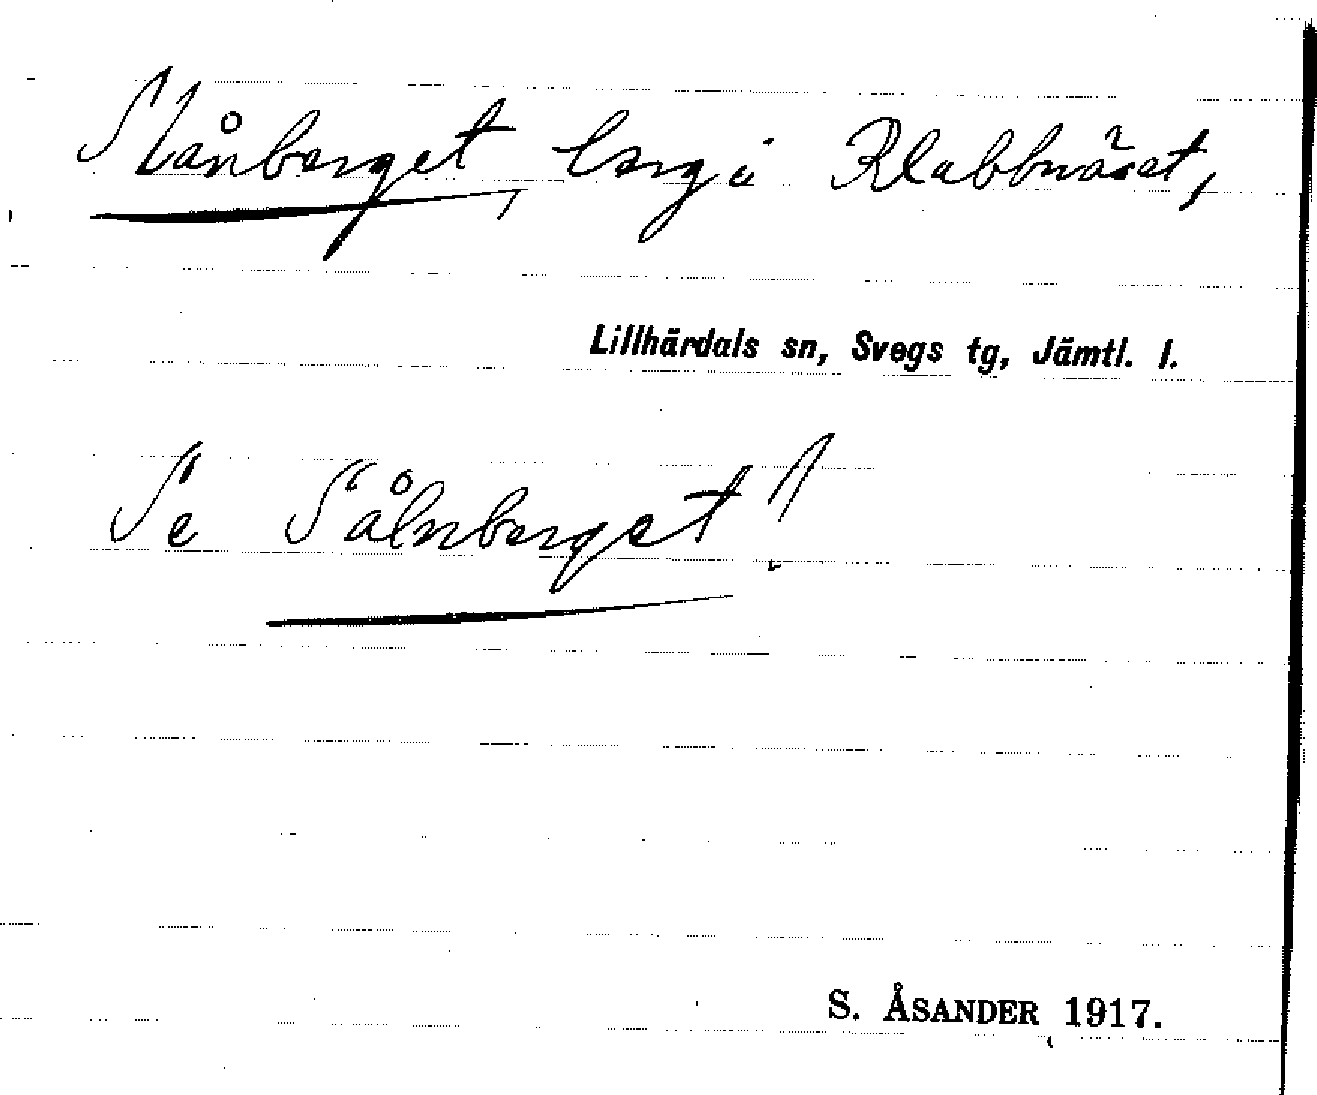 Slånberget, berg i Klabbnäset,
Lillhärdals sn, Svegs tg, Jämtl. l.
Se Sålnberget!
S. ÅSANDER 1917.